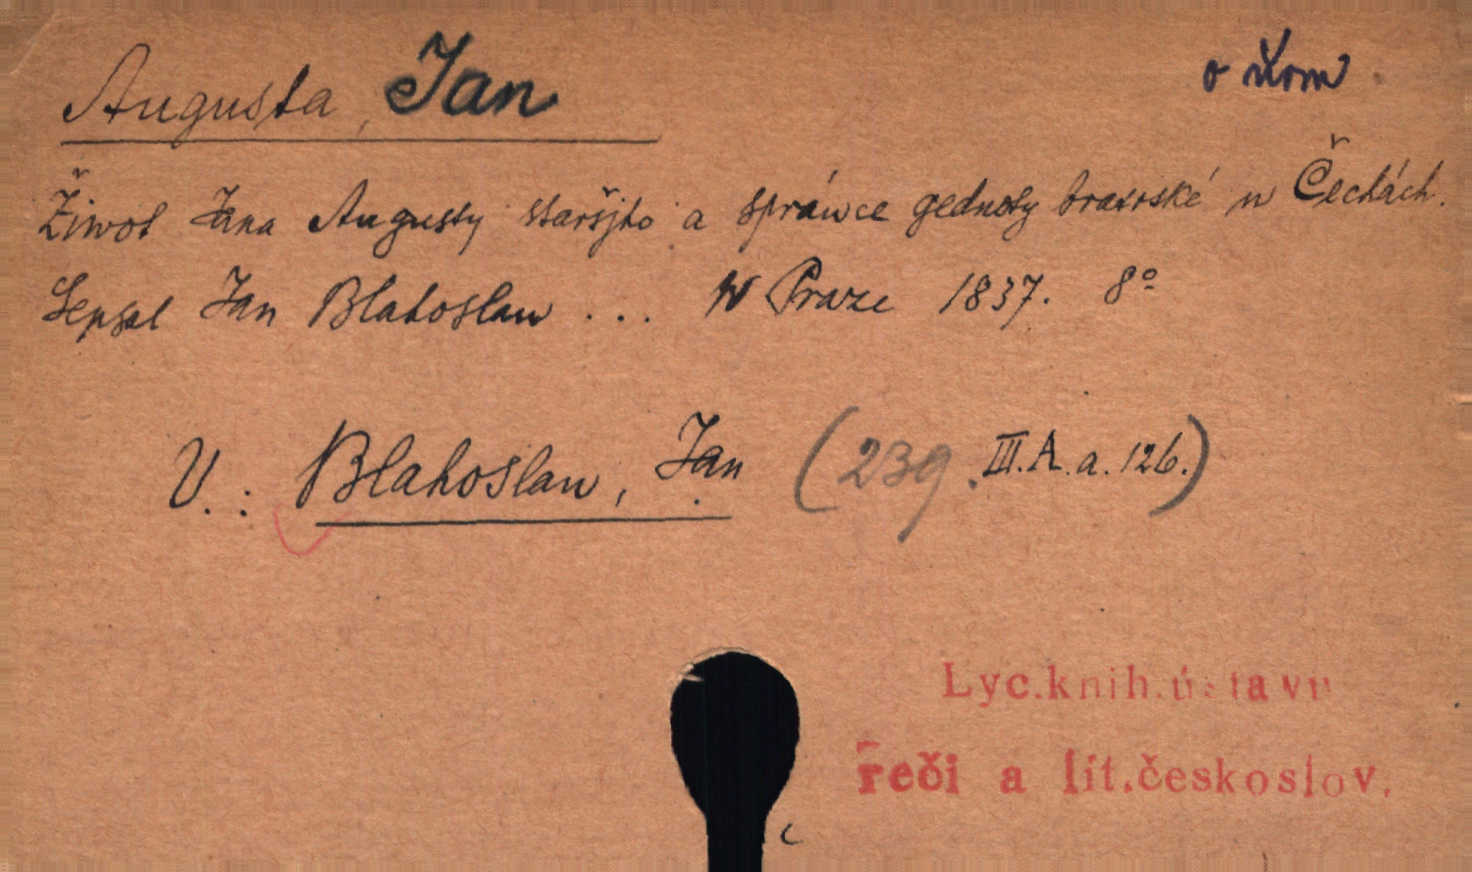 Augusta, Jan
o něm
Žiwot Jana Augusty staršjho a spráwce gednoty bratrské w Čechách.
Sepsal Jan Blahoslaw ... W Praze 1837. 8º
V.: Blahoslaw, Jan (239. III.A.a.126.)
Lyc.knih.ústavu
řeči a lit.českoslov.